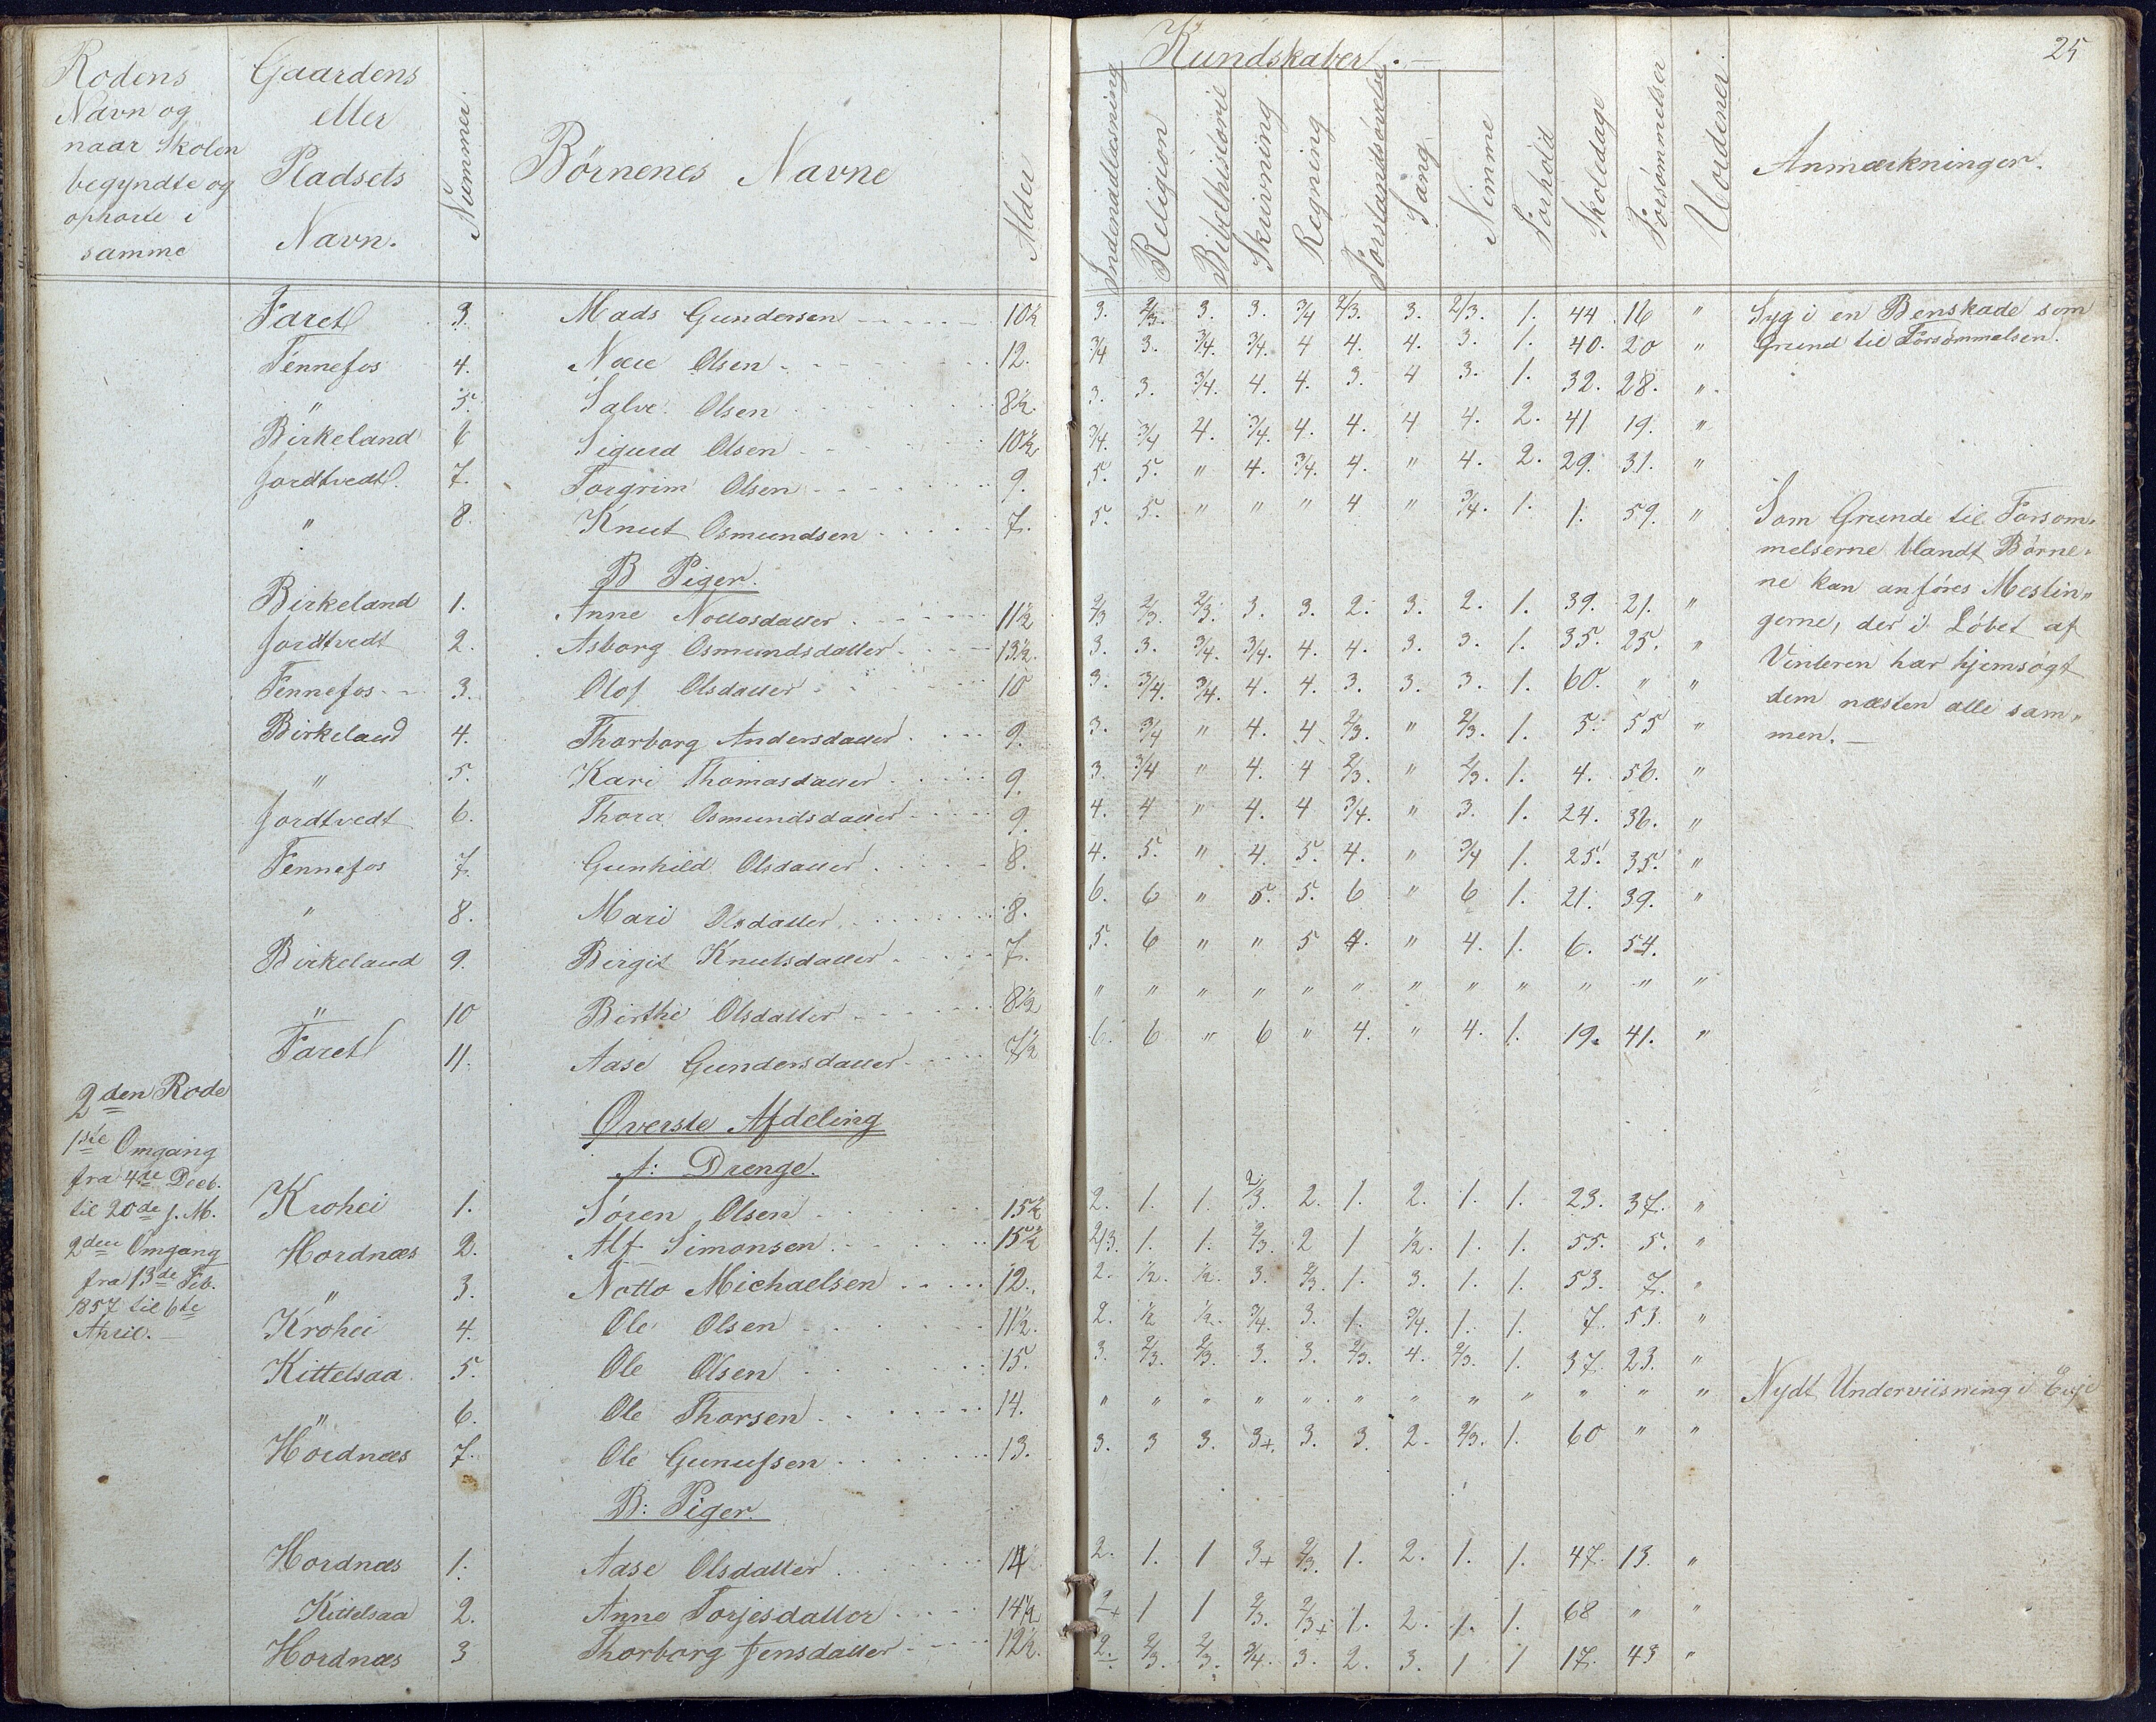 25
Rodens Navn og naar Skolen begyndte og ophørte i samme | Gaardens eller Pladsets Navn. | Nummer. | Børnenes Navne | Alder | Kundskaber. — | Indenadlæsning | Religion | Bibelhistorie | Skrivning | Regning | Forstandsøvelse | Sang | Nemme | Forhold | Skoledage | Forsømmelser | Uordener. | Anmærkninger.
Faret 3. Mads Gundersen 10½ 3. 2/3. 3. 3. 3/4 2/3. 3. 2/3. 1. 44 16 " Syg i en Benskade som
Fennefos 4. Olsen 12. 3/4 3. 3/4. 3/4. 4 4. 4. 3. 1. 40. 20 " Grund til Forsømmelsen.
" 5. Salve Olsen 8½. 3. 3. 3/4. 4. 4. 3. 4 3. 1. 32. 28. "
Birkeland 6 Sigurd Olsen 10½ 3/4. 3/4 4. 3/4. 4. 4. 4 4. 2. 41 19. "
Jordtvedt. 7. Torgrim Olsen 9. 5. 5. " 4. 3/4. 4. " 4. 2. 29. 31. "
" 8. Knut Osmundsen 7. 5. 5. " " " 4 " 3/4. 1. 1. 59. "
Som Grunde til Forsøm-
melserne blandt Børne-
ne kan anføres Meslin-
gerne, der i Løbet af
Vinteren har hjemsøgt
dem næsten alle sam-
men. —
B Piger.
Birkeland 1. Anne Nottosdatter 11½ 2/3 2/3. 2/3. 3. 3. 2. 3. 2. 1. 39. 21. "
Jordtvedt 2. Asborg Osmundsdatter 13½. 3. 3. 3/4. 3/4. 4. 4. 3. 3. 1. 35. 25. "
Fennefos 3. Olof Olsdatter 10 3. 3/4. 3/4. 4. 4. 3. 3. 3. 1. 60. " "
Birkeland 4. Thorborg Andersdatter 9. 3. 3/4 " 4. 4 2/3. " 2/3. 1. 5. 55 "
" 5. Kari Thomasdatter 9. 3. 3/4 " 4. 4 2/3. " 2/3. 1. 4. 56. "
Jordtvedt 6. Thora Osmundsdatter 9. 4. 4 " 4. 4 3/4. " 3. 1. 24. 36. "
Fennefos 7. Gunhild Olsdatter 8. 4. 5. " 4. 5. 4. " 3/4 1. 25. 35. "
" 8. Mari Olsdatter 8. 6. 6 " 5. 5. 6 " 6 1. 21. 39. "
Birkeland 9. Birgit Knutsdatter 7. 5. 6 " " 5 4. " 4. 1. 6. 54.
" 10 Birthe Olsdatter 8½ " " " " " " " " " " " "
Faret 11. Aase Gundersdatter 7½ 6. 6 " 6 " 4. " 4. 1. 19. 41. "
2den Rode
1ste Omgang
fra 4de Decb.
til 20de f. M.
2den Omgang
fra 13de Feb.
1857 til 6te
April. —
Øverste Afdeling
A: Drenge.
Krohei 1. Søren Olsen 15½ 2. 1. 1. 2/3. 2. 1. 2. 1. 1. 23. 37. "
Hordnæs 2. Alf Simonsen 15½ 2/3. 1. 1. 2/3. 2 1 ½. 1. 1. 55. 5. "
" 3. Notto Michaelsen 12. 2. ½. ½. 3. 2/3. 1. 3. 1. 1. 53. 7. "
Krohei 4. Ole Olsen 11½. 2. ½ ½. 3/4. 3. 1. 3/4. 1. 1. 7. 53. "
Kittelsaa 5. Ole Olsen 15. 3. 2/3. 2/3. 3. 3. 2/3. 4. 2/3. 1. 37. 23. "
" 6. Ole Thorsen 14. " " " " " " " " " " " " Nydt Underviisning i Evje
Hordnæs 7. Ole Gunufsen 13. 3. 3 3. 3+. 3. 3. 2. 2/3. 1. 60 " "
B: Piger.
Hordnæs 1. Aase Olsdatter 14 2. 1. 1 3+ 2/3. 1. 2. 1. 1. 47. 13. "
Kittelsaa 2. Anne Torjesdatter 14½ 2+ 1 1 2/3. 2/3+ 1. 2. 1. 1. 68 " "
Hordnæs 3 Thorborg Jensdatter 12½. 2. 2/3. 2/3. 3/4. 3. 2. 3. 1 1 17. 43 "